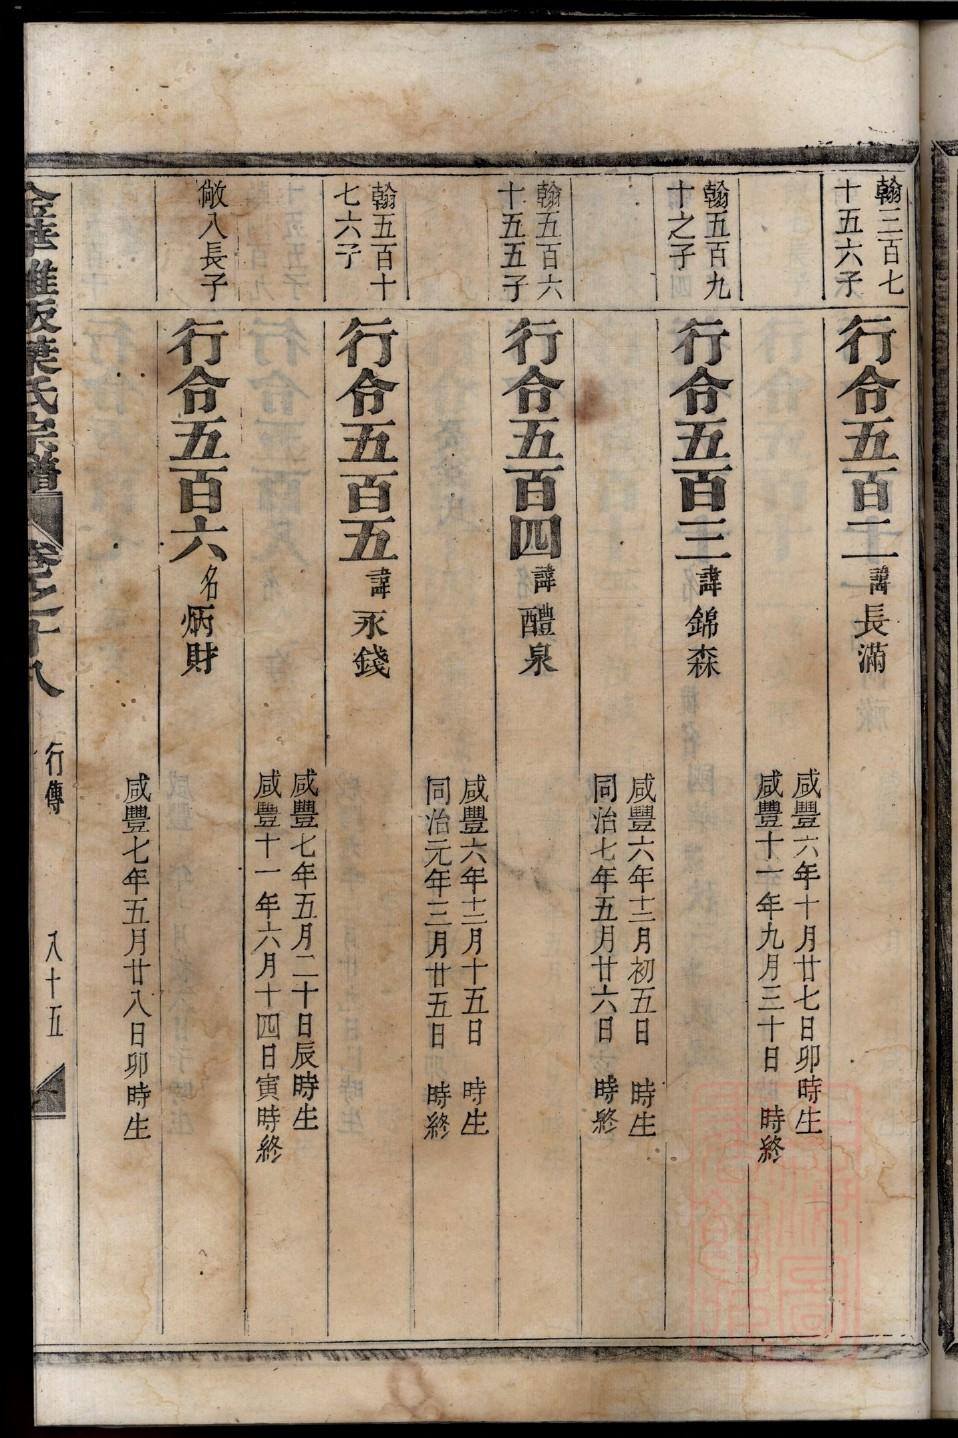 翰三百七
十五六子
行合五百二 諱長滿
咸豐六年十月廿七日卯時生
咸豐十一年九月三十日 時終
翰五百九
十之子
行合五百三 諱錦森
咸豐六年十二月初五日 時生
同治七年五月廿六日 時終
翰五百六
十五五子
行合五百四 諱醴泉
咸豐六年十二月十五日 時生
同治元年三月廿五日 時終
翰五百十
七六子
行合五百五 諱永錢
咸豐七年五月二十日辰時生
咸豐十一年六月十四日寅時終
敞八長子
行合五百六 名炳財
咸豐七年五月廿八日卯時生
金華雅畈葉氏宗譜 卷之十八 行傳 八十五